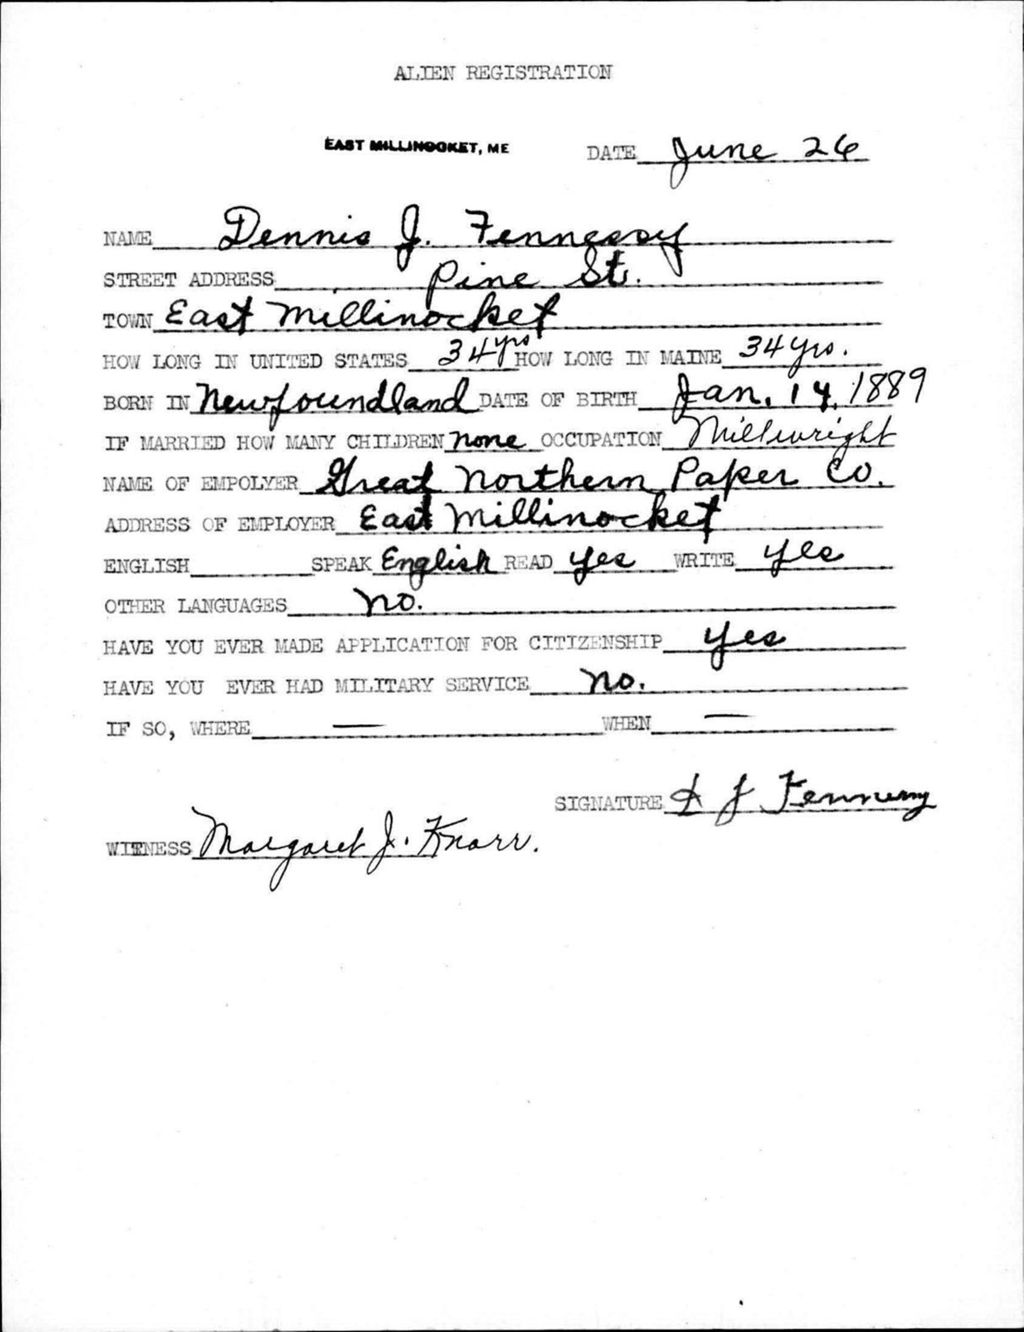 ALIEN REGISTRATION
EAST MILLINOCKET, ME DATE June 26
NAME Dennis J. Fennessy
STREET ADDRESS Pine St.
TOWN East Millinocket
HOW LONG IN UNITED STATES 34 yrs HOW LONG IN MAINE 34 yrs.
BORN IN Newfoundland DATE OF BIRTH Jan. 14, 1889
IF MARRIED HOW MANY CHILDREN none OCCUPATION Millwright
NAME OF EMPOLYER Great Northern Paper Co.
ADDRESS OF EMPLOYER East Millinocket
ENGLISH SPEAK English READ yes WRITE yes
OTHER LANGUAGES no.
HAVE YOU EVER MADE APPLICATION FOR CITIZENSHIP yes
HAVE YOU EVER HAD MILITARY SERVICE no.
IF SO, WHERE — WHEN —
SIGNATURE D J Fennessy
WITNESS Margaret J. Knarr.